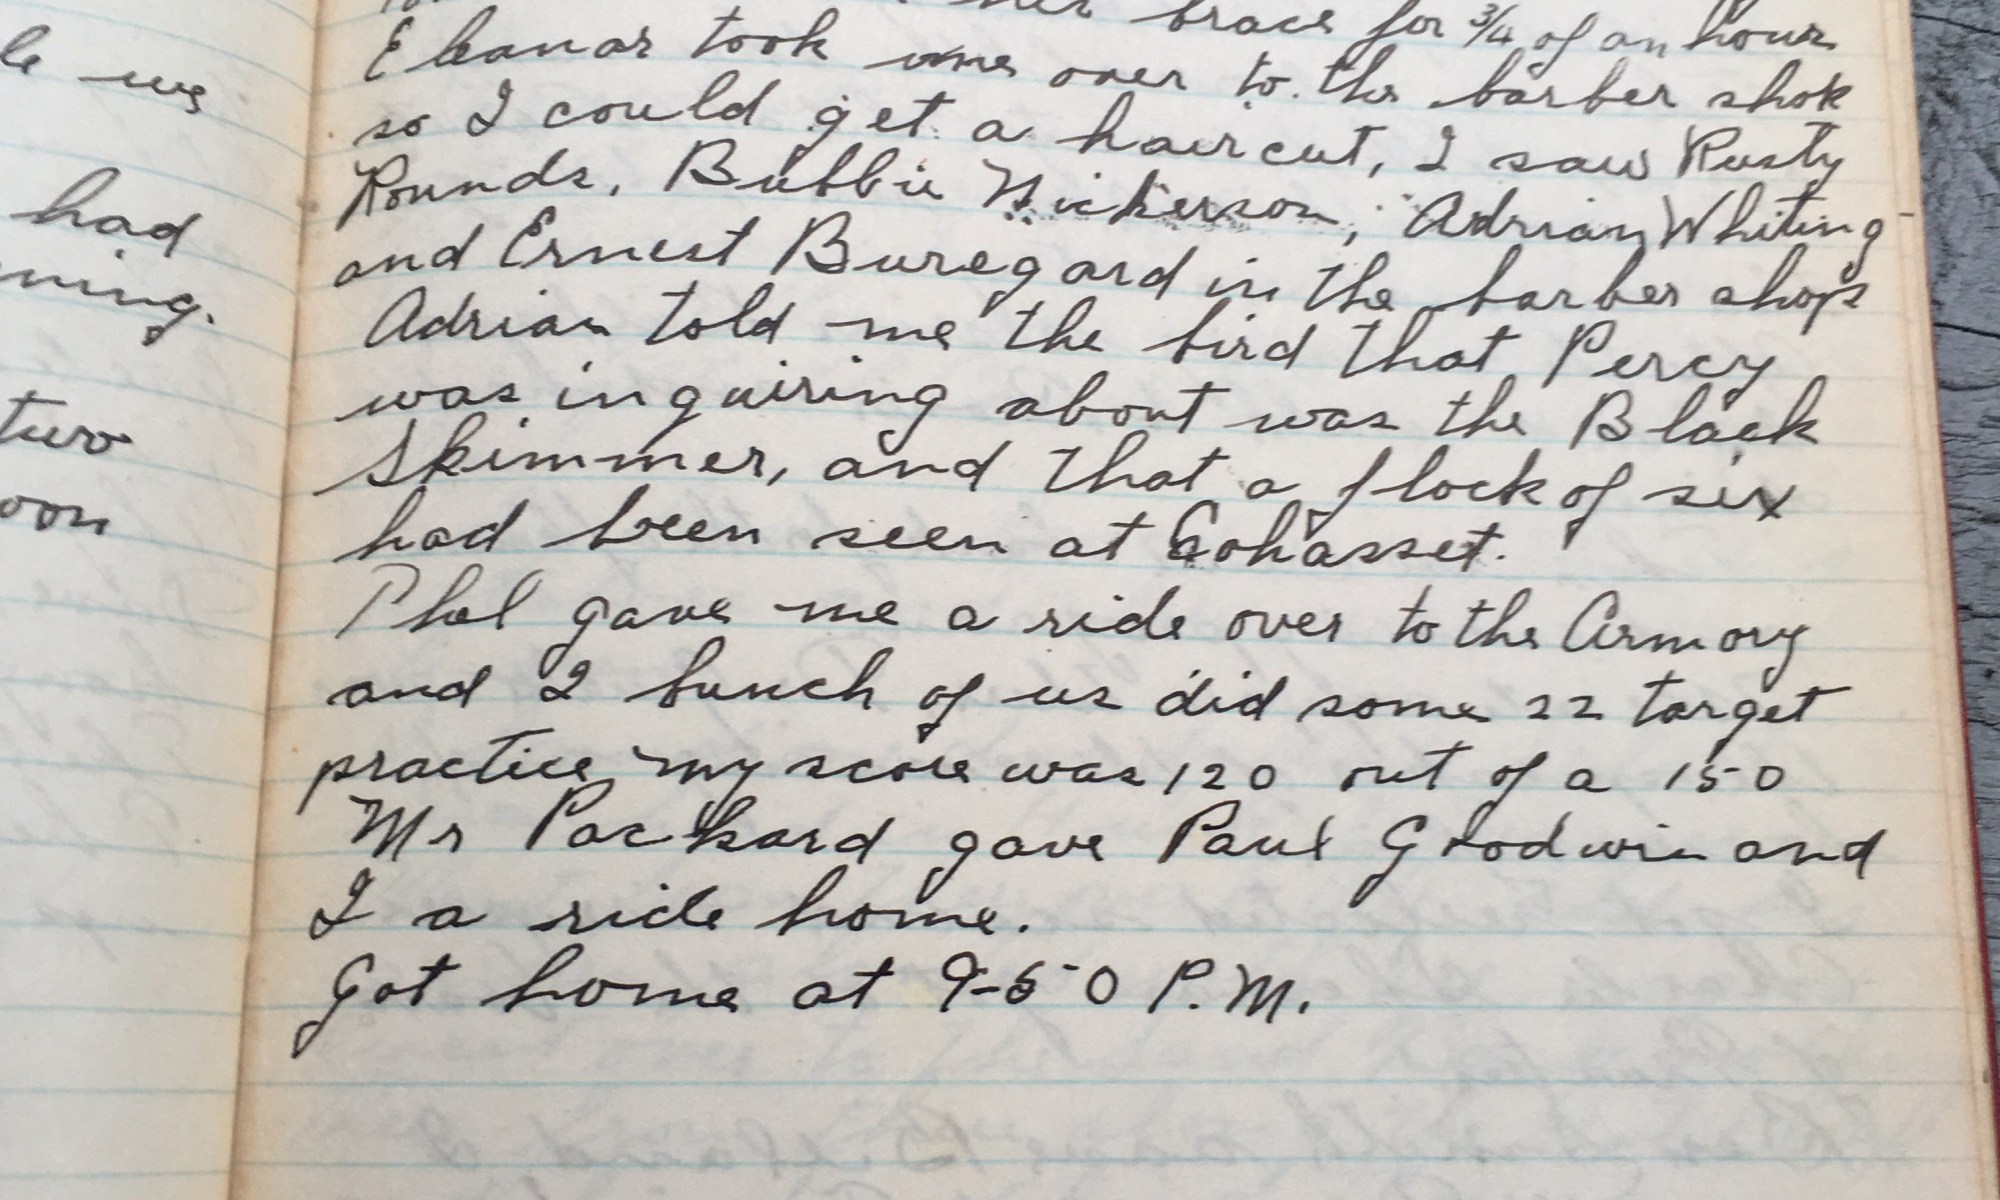 le we
had
ning.
two
oon
her brace for 3/4 of an hour
Eleanor took me over to the barber shop
so I could get a haircut, I saw Rusty
Rounds, Bubbie Nickerson, Adrian Whiting
and Ernest Buregard in the barber shop
Adrian told me the bird that Percy
was inquiring about was the Black
Skimmer, and that a flock of six
had been seen at Cohasset.
Phil gave me a ride over to the Armory
and a bunch of us did some 22 target
practice, my score was 120 out of a 150
Mr Packard gave Paul Goodwin and
I a ride home.
Got home at 9-50 P.M.